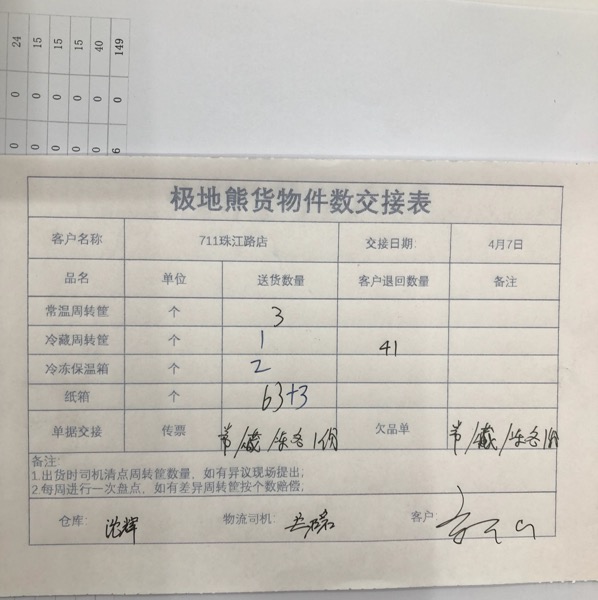 24 15 15 15 40 149
0 0 0 0 0 0
0 0 0 0 0 6
极地熊货物件数交接表
客户名称 711珠江路店 交接日期: 4月7日
品名 单位 送货数量 客户退回数量 备注
常温周转筐 个 3
冷藏周转筐 个 1 41
冷冻保温箱 个 2
纸箱 个 63+3
单据交接 传票 常/藏/冻各1份 欠品单 常/藏/冻各1份
备注:
1.出货时司机清点周转筐数量，如有异议现场提出;
2.每周进行一次盘点，如有差异周转筐按个数赔偿;
仓库: 物流司机: 客户: